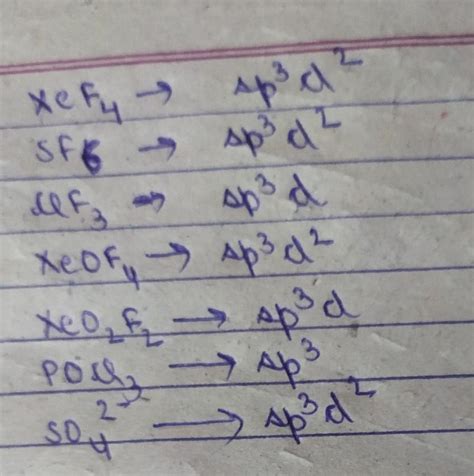 XeF₄ → sp³d²
SF6 → sp³d²
ClF₃ → sp³d
XeOF₄ → sp³d²
XeO₂F₂ → sp³d
POCl₃ → sp³
SO₄²⁻ → sp³d²